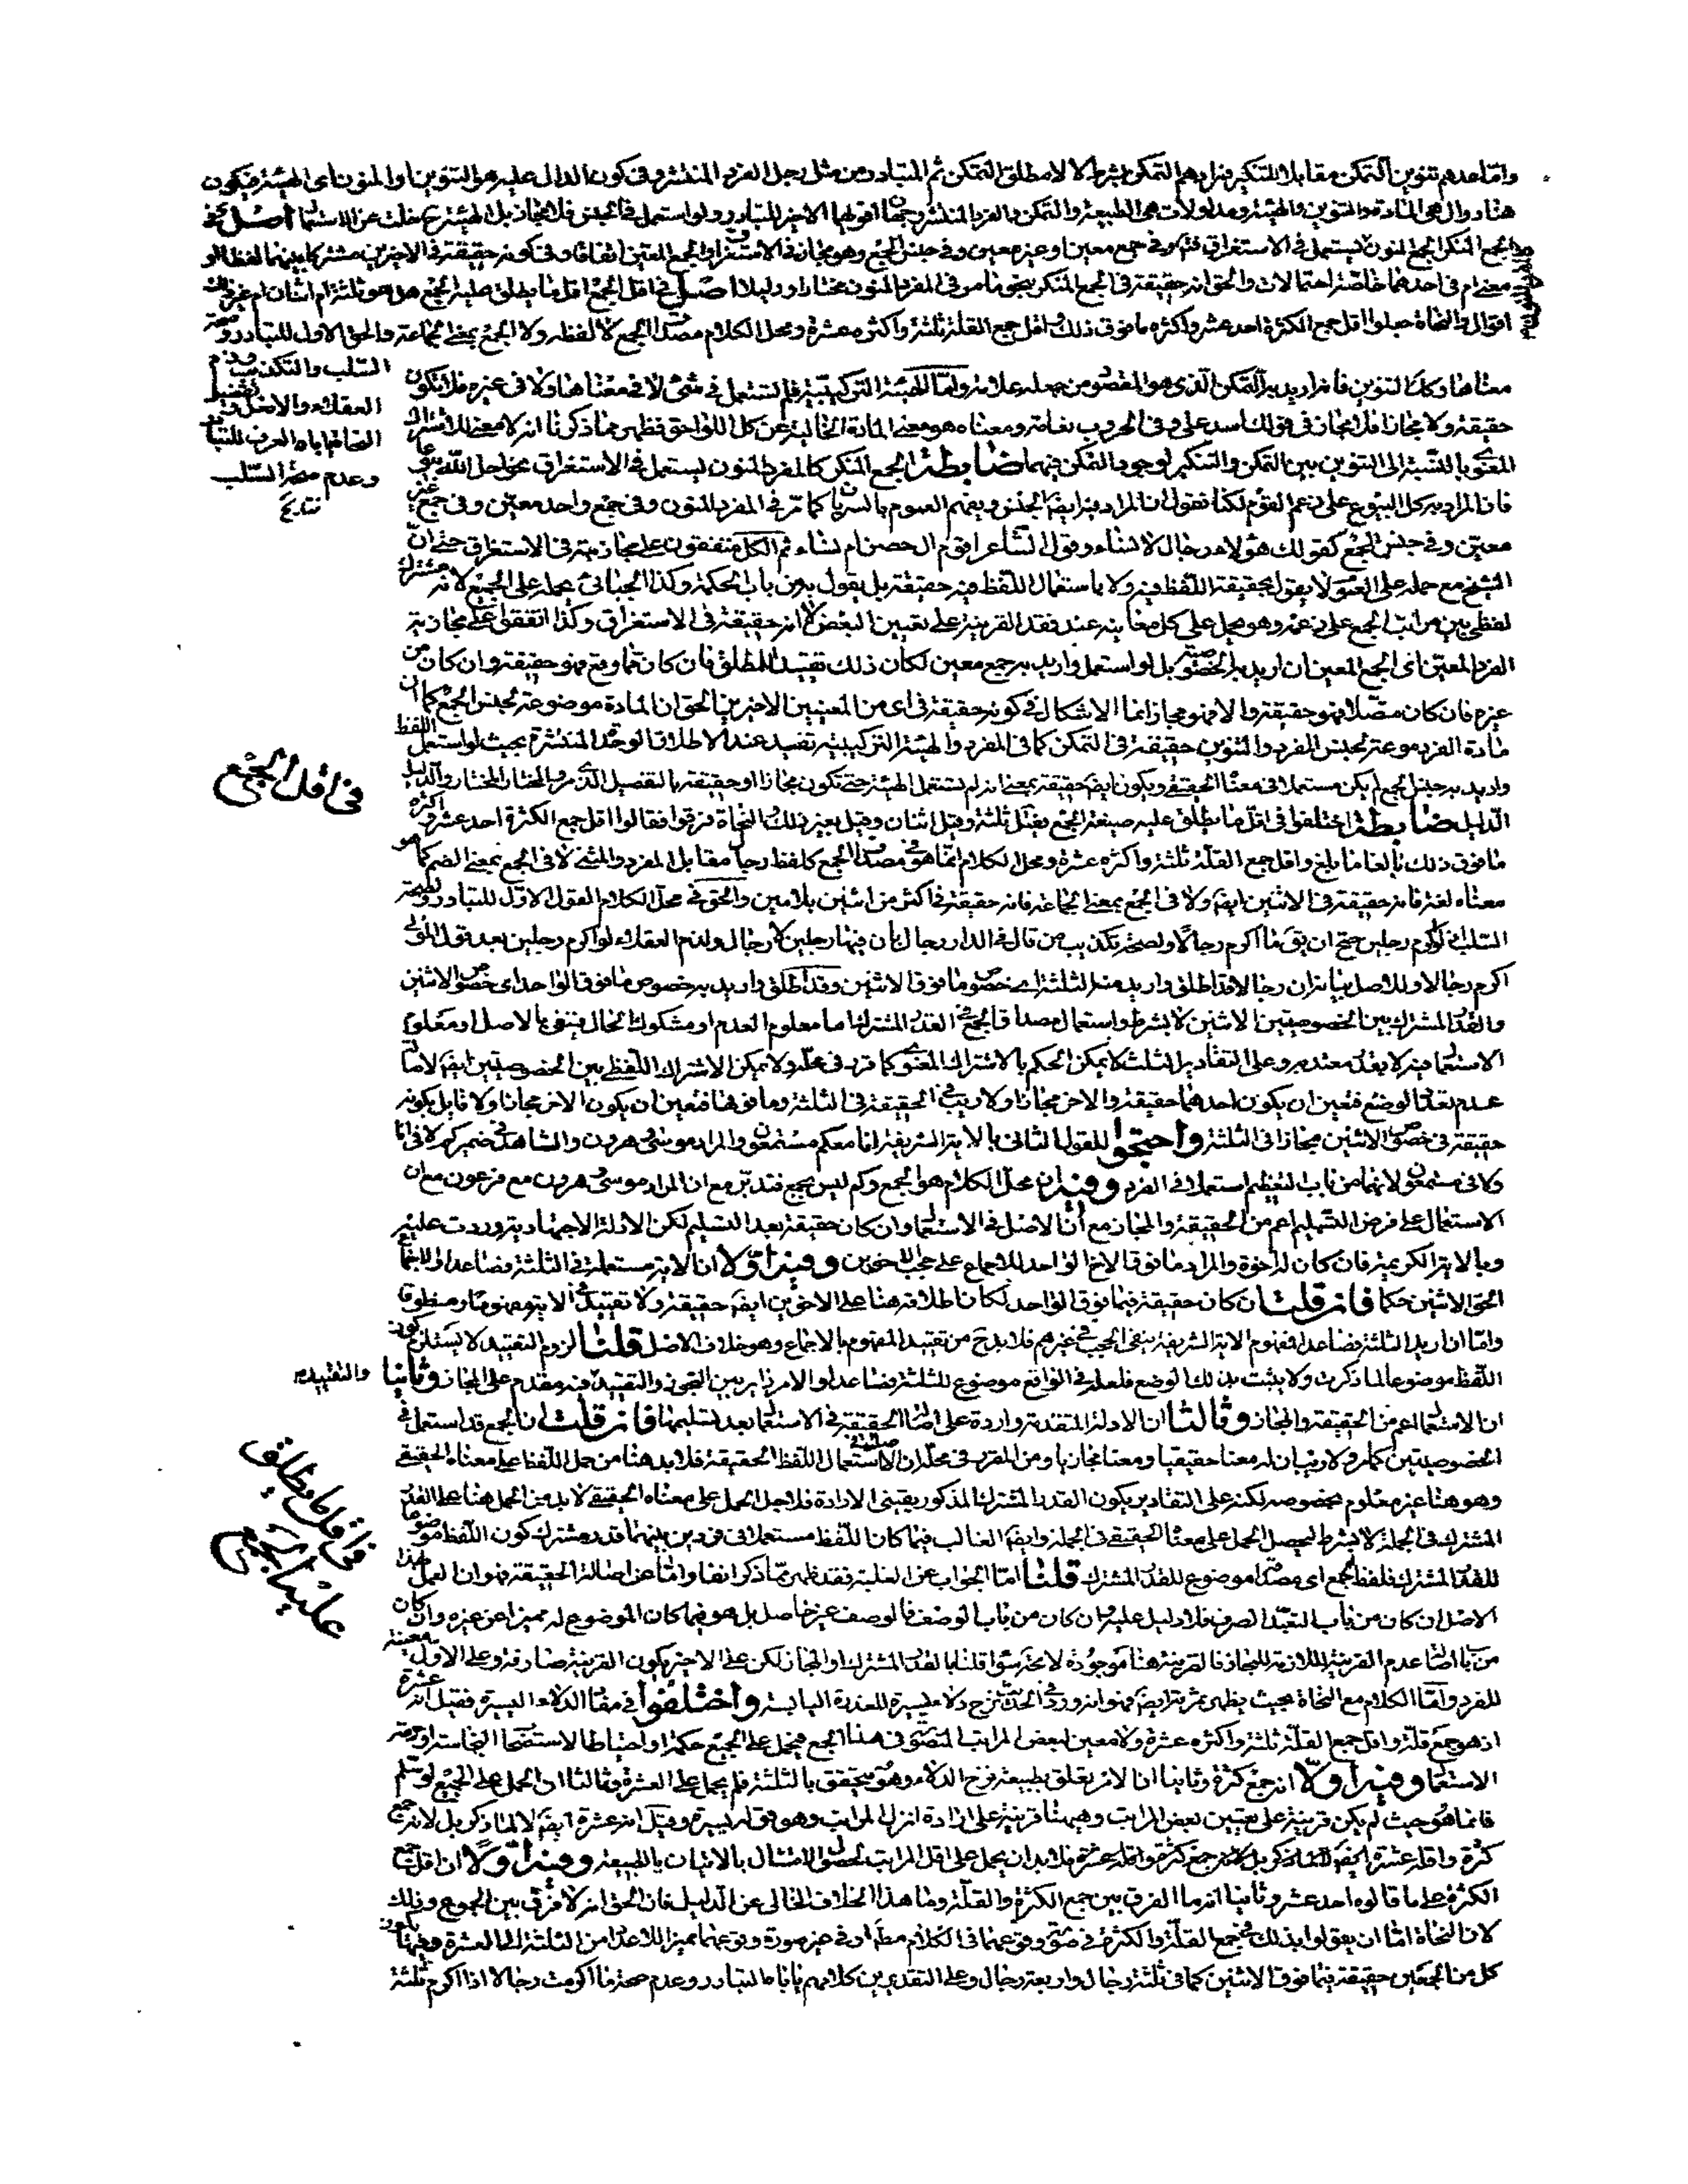 واما عدهم تنوين التمكن مقابلا للتنكير فمرادهم التمكن بشرط لا لا مطلق التمكن ثم المتبادر من مثل رجل الفرد المنتشر وفي كون الدال عليه هو التنوين او المنون اى الهيئة فيكون
هنا دوال هى المادة والتنوين والهيئة ومدلولات هى الطبيعة والتمكن والفرد المنتشر وجهان اقولهما الاخير للتبادر ولو استعمل في الجنس فلا مجاز بل الهيئة ح خلت عن الاستعمال اصل في
الجمع المنكر الجمع المنون يستعمل في الاستغراق وفي جمع معين او غير معين وفي جنس الجمع وهو مجاز في الاستغراق والجمع المعين اتفاقا وفي كونه حقيقة في الاخيرين مشتركا بينهما لفظا او
معنى ام في احدهما خاصة احتمالات والحق انه حقيقة في الجمع المنكر بنحو ما مر في المفرد المنون مختارا ودليلا اصل في اقل الجمع اقل ما يطلق عليه الجمع هل هو ثلثة ام اثنان ام غير ذلك
اقوال والنحاة جعلوا اقل جمع الكثرة احد عشر واكثره ما فوق ذلك واقل جمع القلة ثلثة واكثره عشرة ومحل الكلام مصداق الجمع لا لفظه ولا الجمع بمعنى الجماعة والحق الاول للتبادر وصحة
السلب
العقلاء والاصل
النحاة اباه العرف للتبادر
وعدم صحة السلب
معناها وكان التنوين فانه اريد به التمكن الذي هو المقصود من جعله علامة واما الهيئة التركيبية فلم تستعمل في شئ لا في معناها ولا في غيره فلا تكون
حقيقة ولا مجازا فلا مجاز في قولك اسد على وفي الحروب نعامة ومعناه هو معنى المادة الخالية عن كل اللواحق فظهر مما ذكرنا انه لا معنى للاشتراك
المعنوي بالنسبة الى التنوين بين التمكن والتنكير لوجود التمكن فيهما ضابطة الجمع المنكر كالمفرد المنون يستعمل في الاستغراق نحو احل الله بيوعا
فان المراد به كل البيوع على زعم القوم لكنا نقول ان المراد به ايضا الجنس ويفهم العموم بالسريان كما مر في المفرد المنون وفي جمع واحد معين وفي جمع غير
معين وفي جنس الجمع كقولك هؤلاء رجال لا نساء وقول الشاعر اقوم ال حصن ام نساء ثم الكل متفقون على مجازيته في الاستغراق حتى ان
الشيخ مع حمله على العموم لا يقول بحقيقة اللفظ فيه ولا باستعمال اللفظ فيه حقيقة بل يقول به من باب الحكمة وكذا الجبائي يحمله على الجميع لانه مشترك
لفظي بين مراتب الجمع على زعمه وهو يحمل على كل معانيه عند فقد القرينة على تعيين البعض لا انه حقيقة في الاستغراق وكذا اتفقوا على مجازيته
الفرد المعين اى الجمع المعين ان اريد به الخصوصية بل لو استعمل واريد به جمع معين لكان ذلك تقييدا للمطلق فان كان مما وضع فهو حقيقة وان كان من
غيره فان كان متصلا فهو حقيقة والا فهو مجاز انما الاشكال في كونه حقيقة في اى من المعنيين الاخيرين الحق ان المادة موضوعة لجنس الجمع كما ان
مادة الفرد موضوعة لجنس المفرد والتنوين حقيقة في التمكن كما في المفرد والهيئة التركيبية تفيد عند الاطلاق الوحدة المنتشرة بحيث لو استعمل اللفظ
واريد به جنس الجمع لم يكن مستعملا في معناه الحقيقي ويكون ايضا حقيقة بمعنى انه لم يستعمل الهيئة حتى تكون مجازا او حقيقة بالتفصيل الذي مر والمختار المختار والدليل
الدليل ضابطة اختلفوا في اقل ما يطلق عليه صيغة الجمع فقيل ثلثة وقيل اثنان وقيل بغير ذلك والنحاة فرقوا فقالوا اقل جمع الكثرة احد عشر واكثره
في اقل الجمع
ما فوق ذلك بالغا ما بلغ واقل جمع القلة ثلثة واكثره عشرة ومحل الكلام انما هو في مصداق الجمع كلفظ رجال مقابل المفرد والمثنى لا في الجمع بمعنى الضم كما هو
معناه لغة فانه حقيقة في الاثنين ايضا ولا في الجمع بمعنى الجماعة فانه حقيقة في اكثر من اثنين بلا مين والحق في محل الكلام القول الاول للتبادر ولصحة
السلب في لو اكرم رجلين صح ان يق ما اكرم رجالا ولصحة تكذيب من قال في الدار رجال بان فيها رجلين لا رجال ولذم العقلاء لو اكرم رجلين بعد قول المولى
اكرم رجالا وللاصل بيانه ان رجالا قد اطلق واريد منه الثلثة اى خصوص ما فوق الاثنين وقد اطلق واريد به خصوص ما فوق الواحد اى خصوص الاثنين
والقدر المشترك بين الخصوصيتين الاثنين لا بشرط واستعمال مصداق الجمع في القدر المشترك اما معلوم العدم او مشكوك الحال فينتفى بالاصل او معلوم
الاستعمال فيه لا بقدر معتد به وعلى التقادير الثلث لا يمكن الحكم بالاشتراك المعنوي كما قرر في محله ولا يمكن الاشتراك اللفظي بين الخصوصيتين ايضا لاصالة
عدم تعدد الوضع فتعين ان يكون احدهما حقيقة والاخر مجازا ولا ريب في الحقيقة في الثلثة وما فوقها فتعين ان يكون الاخر مجازا ولا قائل بكونه
حقيقة في خصوص الاثنين مجازا في الثلثة واحتجوا للقول الثاني بالاية الشريفة انا معكم مستمعون والمراد موسى وهرون والشاهد في ضمير كم لا في انا
ولا في مستمعون لانهما من باب التعظيم استعمل في الفرد وفيه ان محل الكلام هو الجمع وكم ليس بجمع فتدبر مع ان المراد موسى وهرون مع فرعون مع ان
الاستعمال على فرض التسليم اعم من الحقيقة والمجاز مع ان الاصل في الاستعمال وان كان حقيقة بعد التسليم لكن الادلة الاجتهادية وردت عليه
وبالاية الكريمة فان كان له اخوة والمراد ما فوق الاخ الواحد للاجماع على حجب الاخوين وفيه اولا ان الاية مستعملة في الثلثة فصاعدا والاجماع
الحق الاثنين حكما فان قلت ان كان حقيقة فيما فوق الواحد لكان اطلاقه هنا على الاخوين ايضا حقيقة ولا تقييد في الاية مفهوما ومنطوقا
واما ان اريد الثلثة فصاعدا فمفهوم الاية الشريفة ينفى الحجب في غيرهم فلا بد ح من تقييد المفهوم بالاجماع وهو خلاف الاصل قلنا لزوم التقييد لا يستلزم كون
اللفظ موضوعا لما ذكرت ولا يثبت بذلك الوضع فلعله في الواقع موضوع للثلثة فصاعدا والامر دائر بين التجوز والتقييد والتقييد فيه مقدم على المجاز وثانيا
ان الاستعمال اعم من الحقيقة والمجاز وثالثا ان الادلة المتقدمة واردة على اصالة الحقيقة في الاستعمال بعد تسليمها فان قلت ان الجمع قد استعمل في
الخصوصيتين كما مر ولا ريب ان له معنا حقيقيا ومعنا مجازيا ومن المقرر في محله ان الاصل في استعمال اللفظ الحقيقة فلا بد هنا من حمل اللفظ على معناه الحقيقي
في اقل ما يطلق
عليه الجمع
وهو هنا غير معلوم بخصوصه لكنه على التقادير يكون القدر المشترك المذكور يقينى الارادة فلاجل الحمل على معناه الحقيقي لا بد من الحمل هنا على القدر
المشترك في الجملة لا بشرط ليحصل الحمل على معناه الحقيقي في الجملة وايضا الغالب فيما كان اللفظ مستعملا في فردين بينهما قدر مشترك كون اللفظ موضوعا
للقدر المشترك فلفظ الجمع اى مصداقه موضوع للقدر المشترك قلنا اما الجواب عن الغلبة فقد ظهر مما ذكر انفا واما عن اصالة الحقيقة فهو ان العمل بهذا
الاصل ان كان من باب التعبد الصرف فلا دليل عليه وان كان من باب الوصف فالوصف غير حاصل بل هو فيما كان الموضوع له مميزا عن غيره وان كان
من باب اصالة عدم القرينة اللازمة للمجاز فالقرينة هنا موجودة لا محة سواء قلنا بالقدر المشترك او المجاز لكن على الاخير يكون القرينة صارفة وعلى الاول معينة
للفرد واما الكلام مع النحاة بحيث يظهر ثمرته ايضا فهو انه ورد في الحديث نزح دلاء يسيرة للعذرة اليابسة واختلفوا في مقدار الدلاء اليسيرة فقيل انه عشرة
اذ هو جمع قلة واقل جمع القلة ثلثة واكثره عشرة ولا معين لبعض المراتب المتصورة في هذا الجمع فيحمل على الجميع حكمة او احتياطا لاستصحاب النجاسة او حرمة
الاستعمال وفيه اولا انه جمع كثرة وثانيا ان الامر تعلق بطبيعة نزح الدلاء وهو يتحقق بالثلثة فلم يحمل على العشرة وثالثا ان الحمل على الجميع لو سلم
فانما هو حيث لم يكن قرينة على تعيين بعض المراتب وهيهنا قرينة على ارادة انزل المراتب وهو قوله يسيرة وقيل انه عشرة ايضا لا لما ذكر بل لانه جمع
كثرة واقله عشرة فلا بد ان يحمل على اقل المراتب لحصول الامتثال بالاتيان بالطبيعة وفيه اولا ان اقل جمع
الكثرة على ما قالوه احد عشر وثانيا انه ما الفرق بين جمع الكثرة والقلة وما هذا الخلاف الخالي عن الدليل فان الحق انه لا فرق بين الجموع وذلك
لان النحاة اما ان يقولوا بذلك في جمع القلة والكثرة في صورة وقوعهما في الكلام مطلقا او في غير صورة وقوعهما مميزا للاعداد من الثلثة الى العشرة وفيها يكون
كل من الجمعين حقيقة فيما فوق الاثنين كما في ثلثة رجال واربعة رجال وعلى التقديرين كلامهم ياباه التبادر وعدم صحة ما اكرمت رجالا اذا اكرم ثلثة